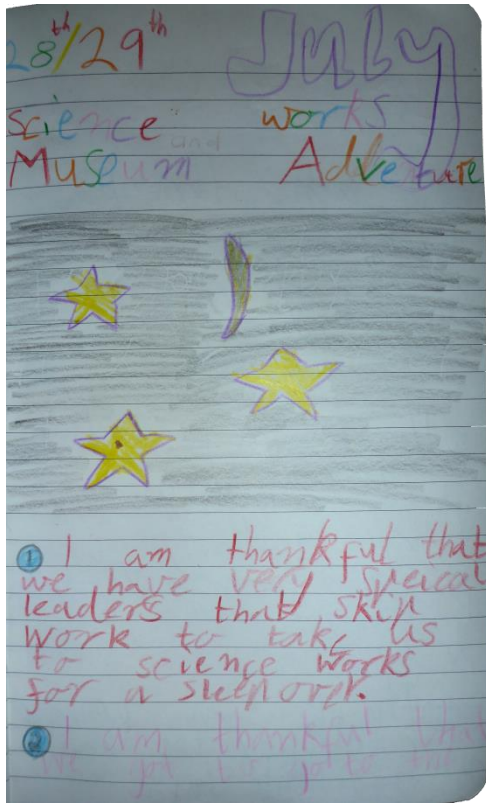 28th/29th July
science works
and
Museum Adventure
① I am thankful that
we have very speical
leaders that skip
work to take us
to science works
for a sleepover.
② I am thankful that
we got to go to the